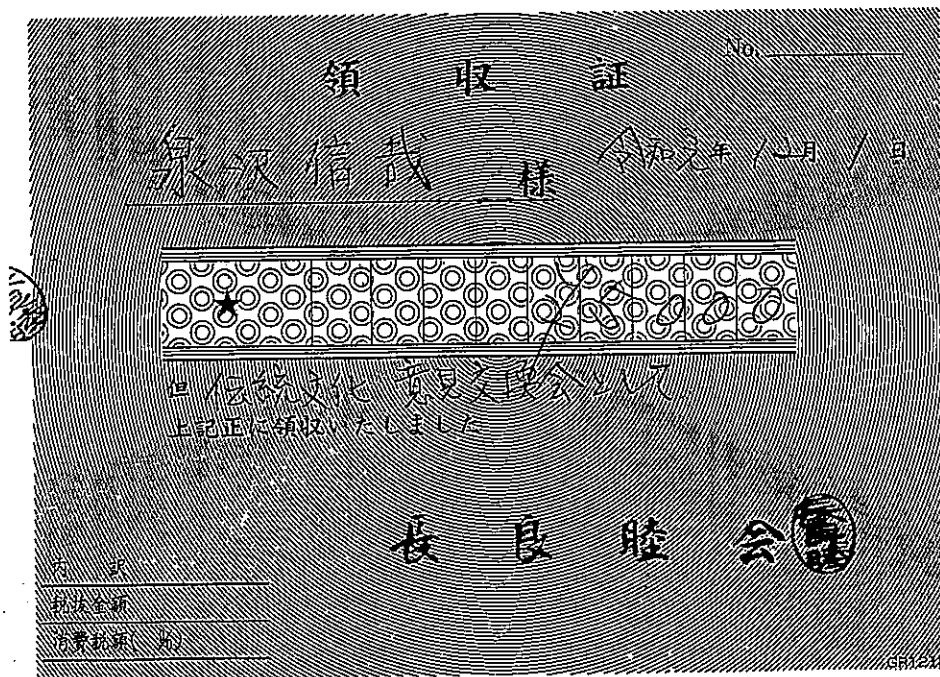 No.
領収証
泉沢信哉 様 令和元年12月1日
★ ¥8000
但 伝統文化 意見交換会として
上記正に領収いたしました
長良睦会
内訳
税抜金額
消費税額( %)
GR121